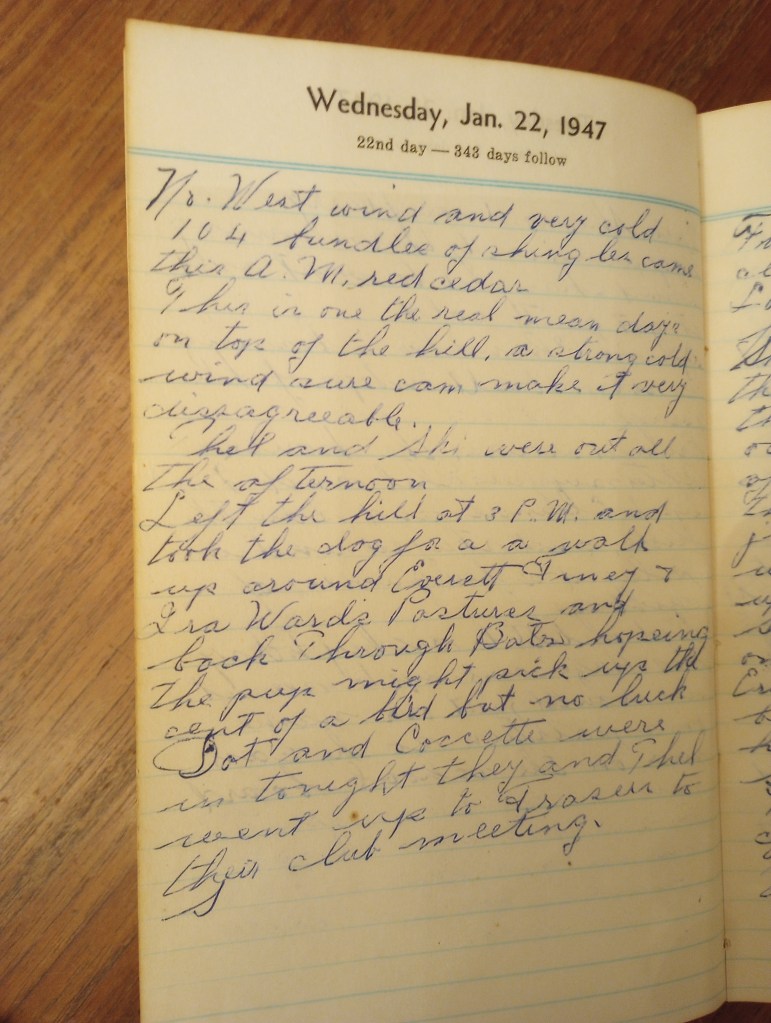 Wednesday, Jan. 22, 1947
22nd day — 343 days follow
No. West wind and very cold
104 bundles of shingles came
this A.M. red cedar
This is one the real mean days
on top of the hill, a strong cold
wind sure cam make it very
dissagreeable.
Thel and Ski were out all
the afternoon
Left the hill at 3 P.M. and
took the dog for a a walk
up around Everett &
Ira Wards Pastures and
back Through Bats hopeing
the pup might pick up the
cent of a bird but no luck
Dot and were
in tonight they and Thel
went up to to
their club meeting.
Fr